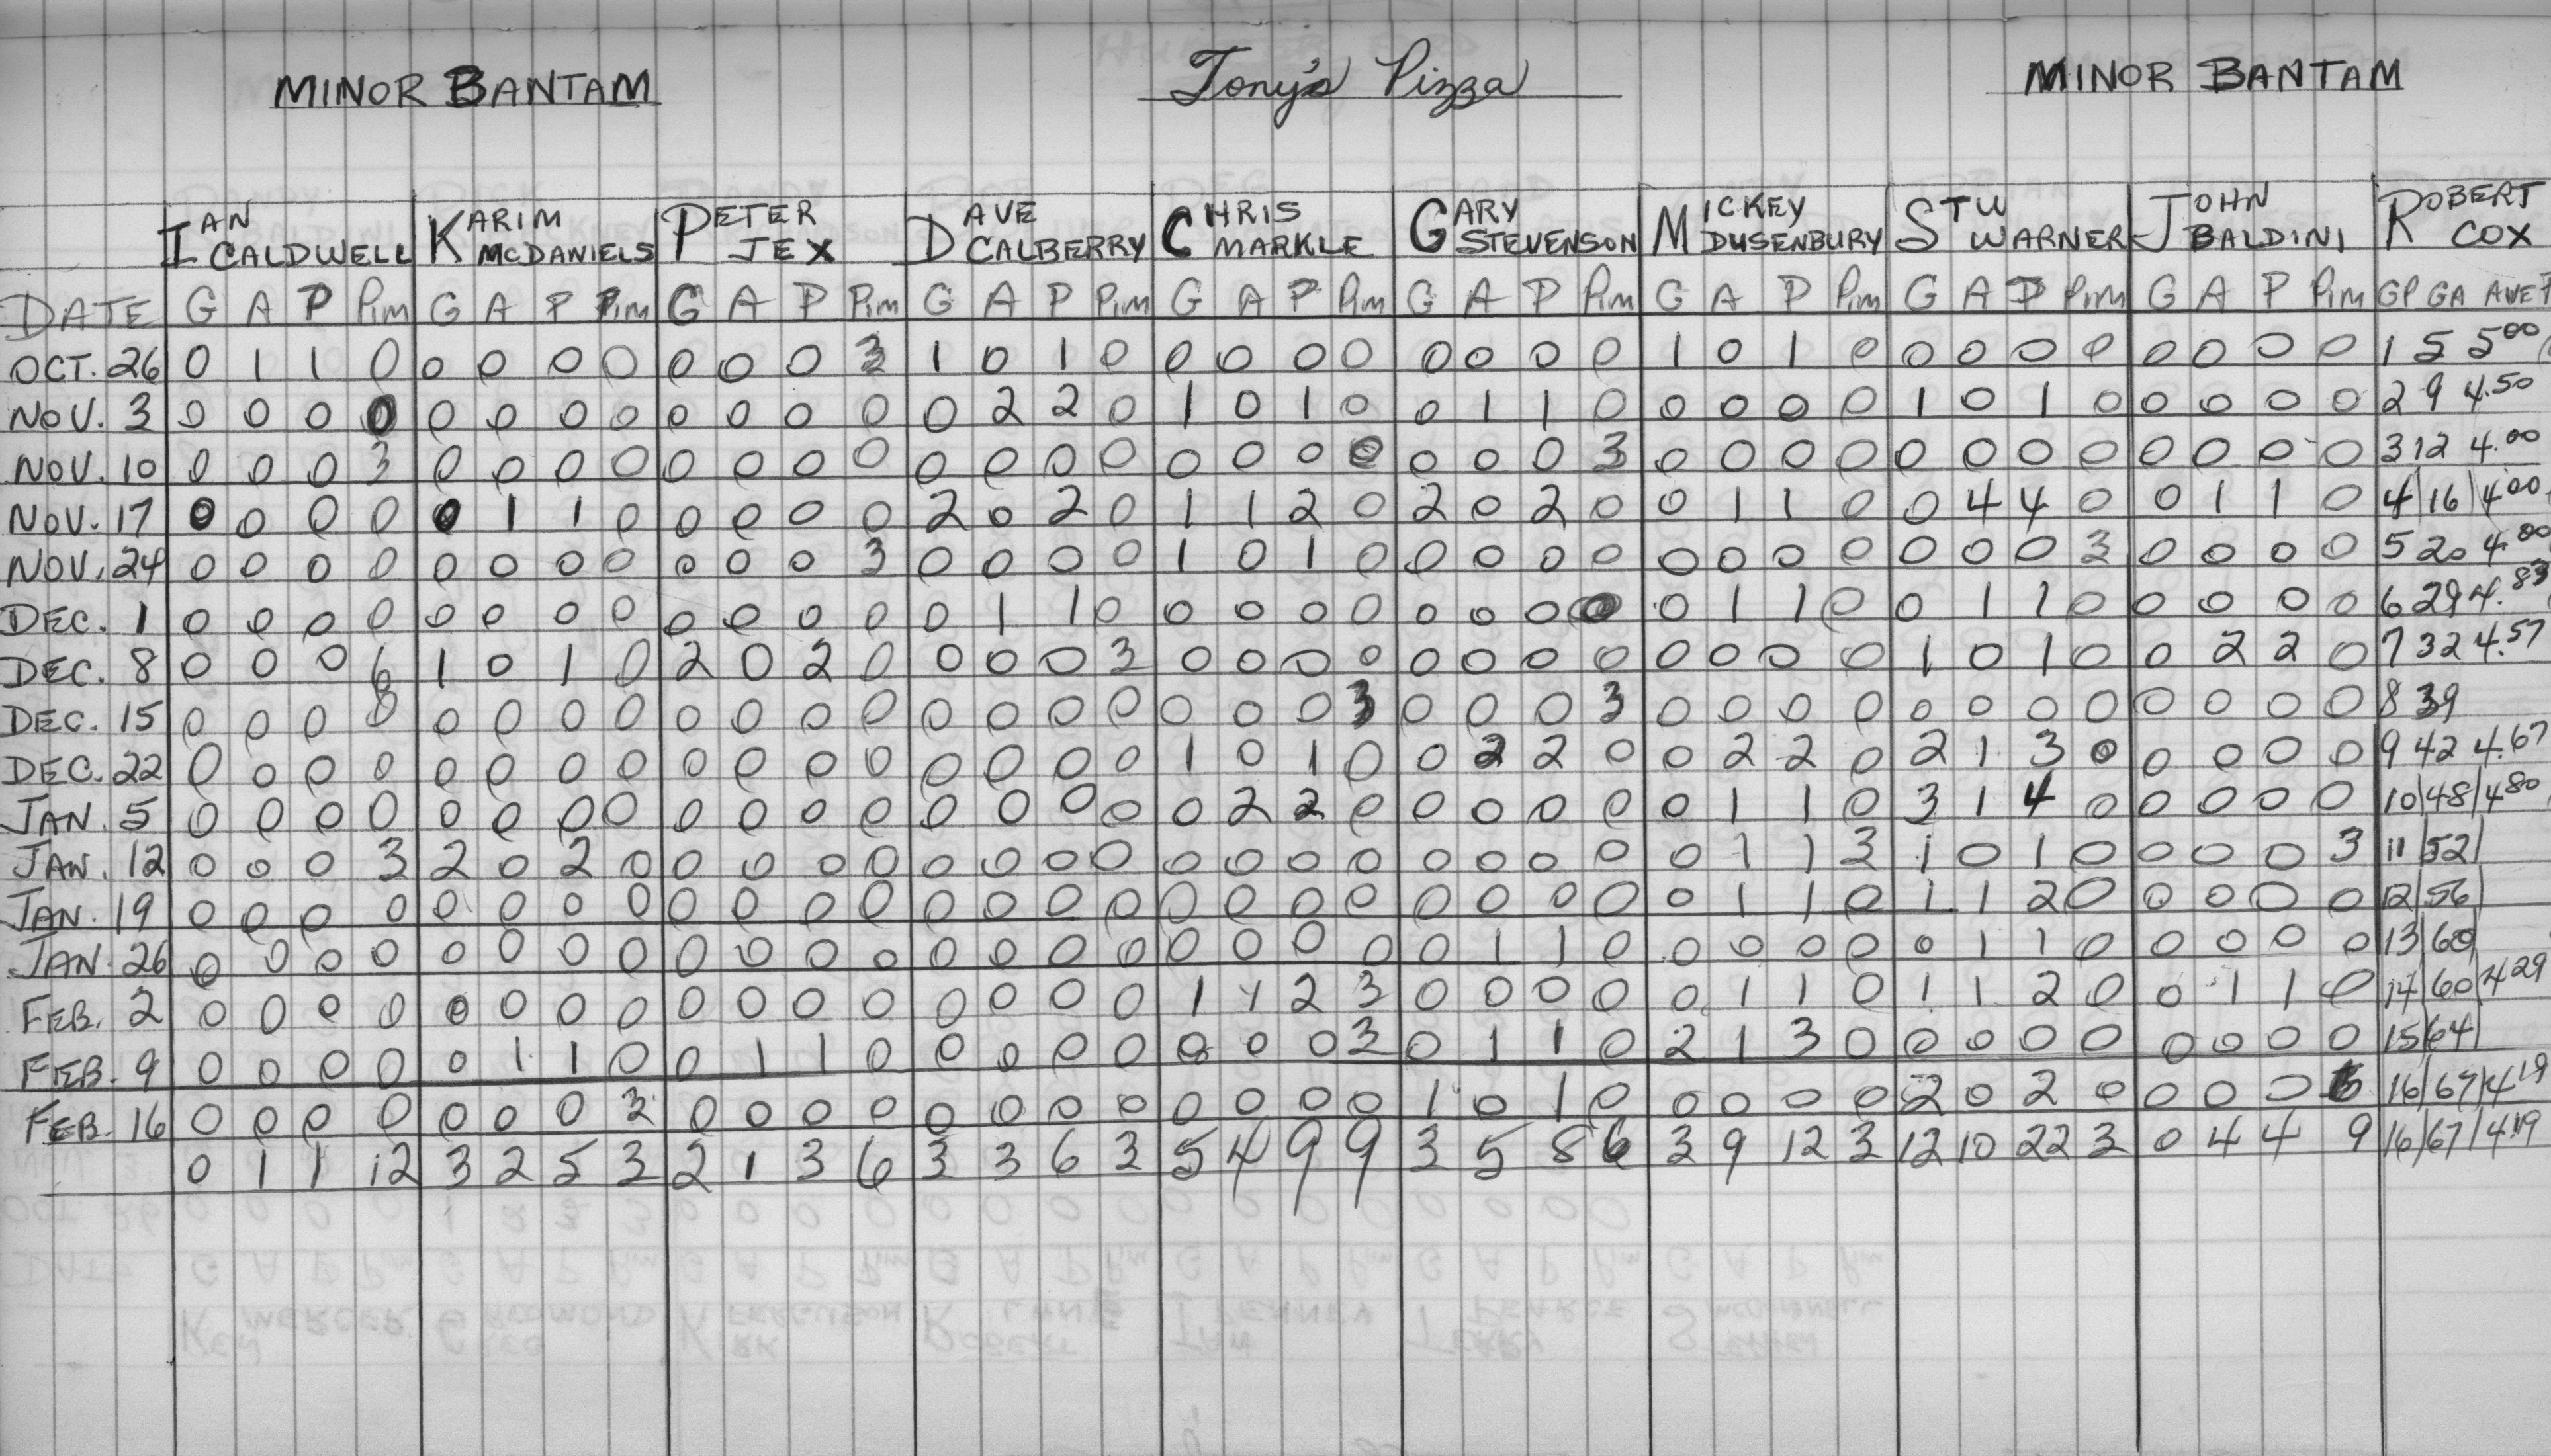 MINOR BANTAM Tony's Pizza MINOR BANTAM
IAN CALDWELL KARIM McDANIELS PETER JEX DAVE CALBERRY CHRIS MARKLE GARY STEVENSON MICKEY DUSENBURY STU WARNER JOHN BALDINI ROBERT COX
DATE G A P Pim G A P Pim G A P Pim G A P Pim G A P Pim G A P Pim G A P Pim G A P Pim G A P Pim GP GA AVE
OCT. 26 0 1 1 0 0 0 0 0 0 0 0 3 1 0 1 0 0 0 0 0 0 0 0 0 1 0 1 0 0 0 0 0 0 0 0 0 1 5 5.00
NOV. 3 0 0 0 0 0 0 0 0 0 0 0 0 0 2 2 0 1 0 1 0 0 1 1 0 0 0 0 0 1 0 1 0 0 0 0 0 2 9 4.50
NOV. 10 0 0 0 3 0 0 0 0 0 0 0 0 0 0 0 0 0 0 0 0 0 0 0 3 0 0 0 0 0 0 0 0 0 0 0 0 3 12 4.00
NOV. 17 0 0 0 0 0 1 1 0 0 0 0 0 2 0 2 0 1 1 2 0 2 0 2 0 0 1 1 0 0 4 4 0 0 1 1 0 4 16 4.00
NOV. 24 0 0 0 0 0 0 0 0 0 0 0 3 0 0 0 0 1 0 1 0 0 0 0 0 0 0 0 0 0 0 0 3 0 0 0 0 5 20 4.00
DEC. 1 0 0 0 0 0 0 0 0 0 0 0 0 0 1 1 0 0 0 0 0 0 0 0 0 0 1 1 0 0 1 1 0 0 0 0 0 6 29 4.83
DEC. 8 0 0 0 6 1 0 1 0 2 0 2 0 0 0 0 3 0 0 0 0 0 0 0 0 0 0 0 0 1 0 1 0 0 2 2 0 7 32 4.57
DEC. 15 0 0 0 0 0 0 0 0 0 0 0 0 0 0 0 0 0 0 0 3 0 0 0 3 0 0 0 0 0 0 0 0 0 0 0 0 8 39
DEC. 22 0 0 0 0 0 0 0 0 0 0 0 0 0 0 0 0 1 0 1 0 0 2 2 0 0 2 2 0 2 1 3 0 0 0 0 0 9 42 4.67
JAN. 5 0 0 0 0 0 0 0 0 0 0 0 0 0 0 0 0 0 2 2 0 0 0 0 0 0 1 1 0 3 1 4 0 0 0 0 0 10 48 4.80
JAN. 12 0 0 0 3 2 0 2 0 0 0 0 0 0 0 0 0 0 0 0 0 0 0 0 0 0 1 1 3 1 0 1 0 0 0 0 3 11 52
JAN. 19 0 0 0 0 0 0 0 0 0 0 0 0 0 0 0 0 0 0 0 0 0 0 0 0 0 1 1 0 1 1 2 0 0 0 0 0 12 56
JAN. 26 0 0 0 0 0 0 0 0 0 0 0 0 0 0 0 0 0 0 0 0 0 1 1 0 0 0 0 0 0 1 1 0 0 0 0 0 13 60
FEB. 2 0 0 0 0 0 0 0 0 0 0 0 0 0 0 0 0 1 1 2 3 0 0 0 0 0 1 1 0 1 1 2 0 0 1 1 0 14 60 4.29
FEB. 9 0 0 0 0 0 1 1 0 0 1 1 0 0 0 0 0 0 0 0 3 0 1 1 0 2 1 3 0 0 0 0 0 0 0 0 0 15 64
FEB. 16 0 0 0 0 0 0 0 3 0 0 0 0 0 0 0 0 0 0 0 0 1 0 1 0 0 0 0 0 2 0 2 0 0 0 0 16 67 4.19
0 1 1 12 3 2 5 3 2 1 3 6 3 3 6 3 5 4 9 9 3 5 8 6 3 9 12 3 12 10 22 3 0 4 4 9 16 67 4.19